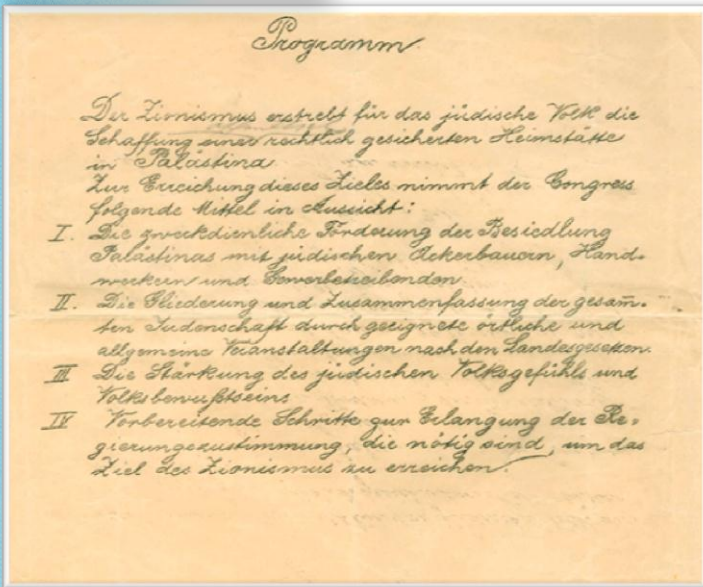 Programm.
Der Zionismus erstrebt für das jüdische Volk die
Schaffung einer rechtlich gesicherten Heimstätte
in Palästina.
Zur Erreichung dieses Zieles nimmt der Congress
folgende Mittel in Aussicht:
I. Die zweckdienliche Förderung der Besiedlung
Palästinas mit jüdischen Ackerbauern, Hand-
werkern und Gewerbetreibenden.
II. Die Gliederung und Zusammenfassung der gesam̄-
ten Judenschaft durch geeignete örtliche und
allgemeine Veranstaltungen nach den Landesgesetzen.
III Die Stärkung des jüdischen Volksgefühls und
Volksbewußtseins
IV Vorbereitende Schritte zur Erlangung der Re-
gierungszustimmung, die nötig sind, um das
Ziel des Zionismus zu erreichen.